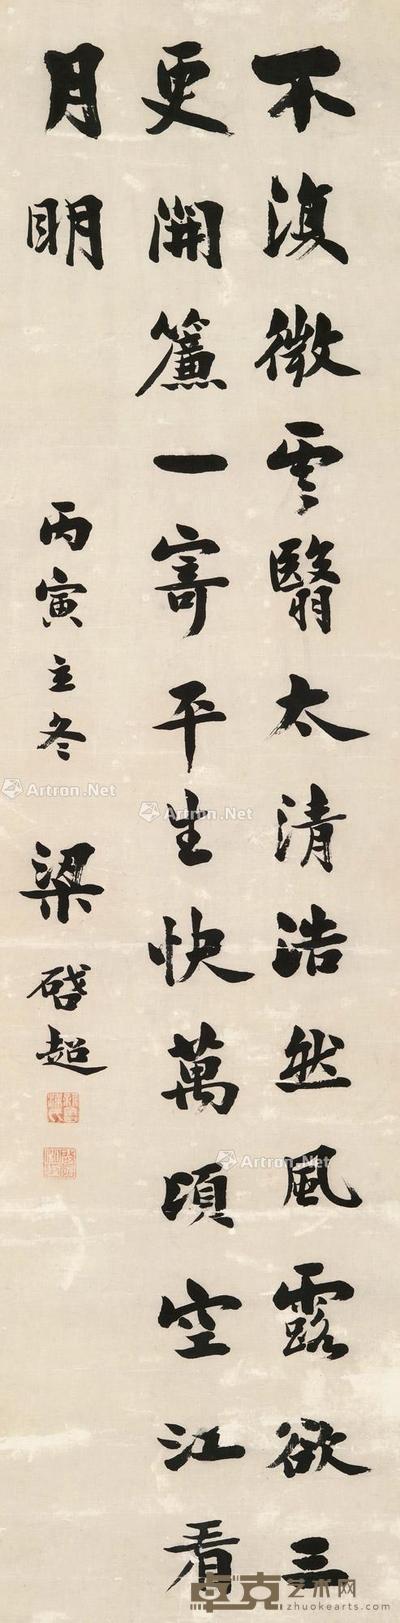 不復微雲翳太清浩然風露欲三
更開簾一寄平生快萬頃空江看
月明
丙寅立冬
梁啓超
Artron.Net
Artron.Net
Artron.Net
Artron.Net
卓克艺术网
zhuokearts.com